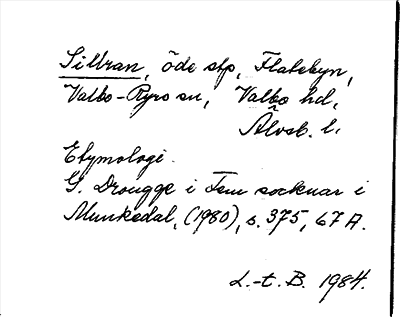 Sillran, öde stp, Flatebyn,
Valbo-Ryrs sn, Valbo hd,
Älvsb. l.
Etymologi.
G. Drougge i Fem socknar i
Munkedal, (1980), s. 375, 67 A.
L.-t. B. 1984.